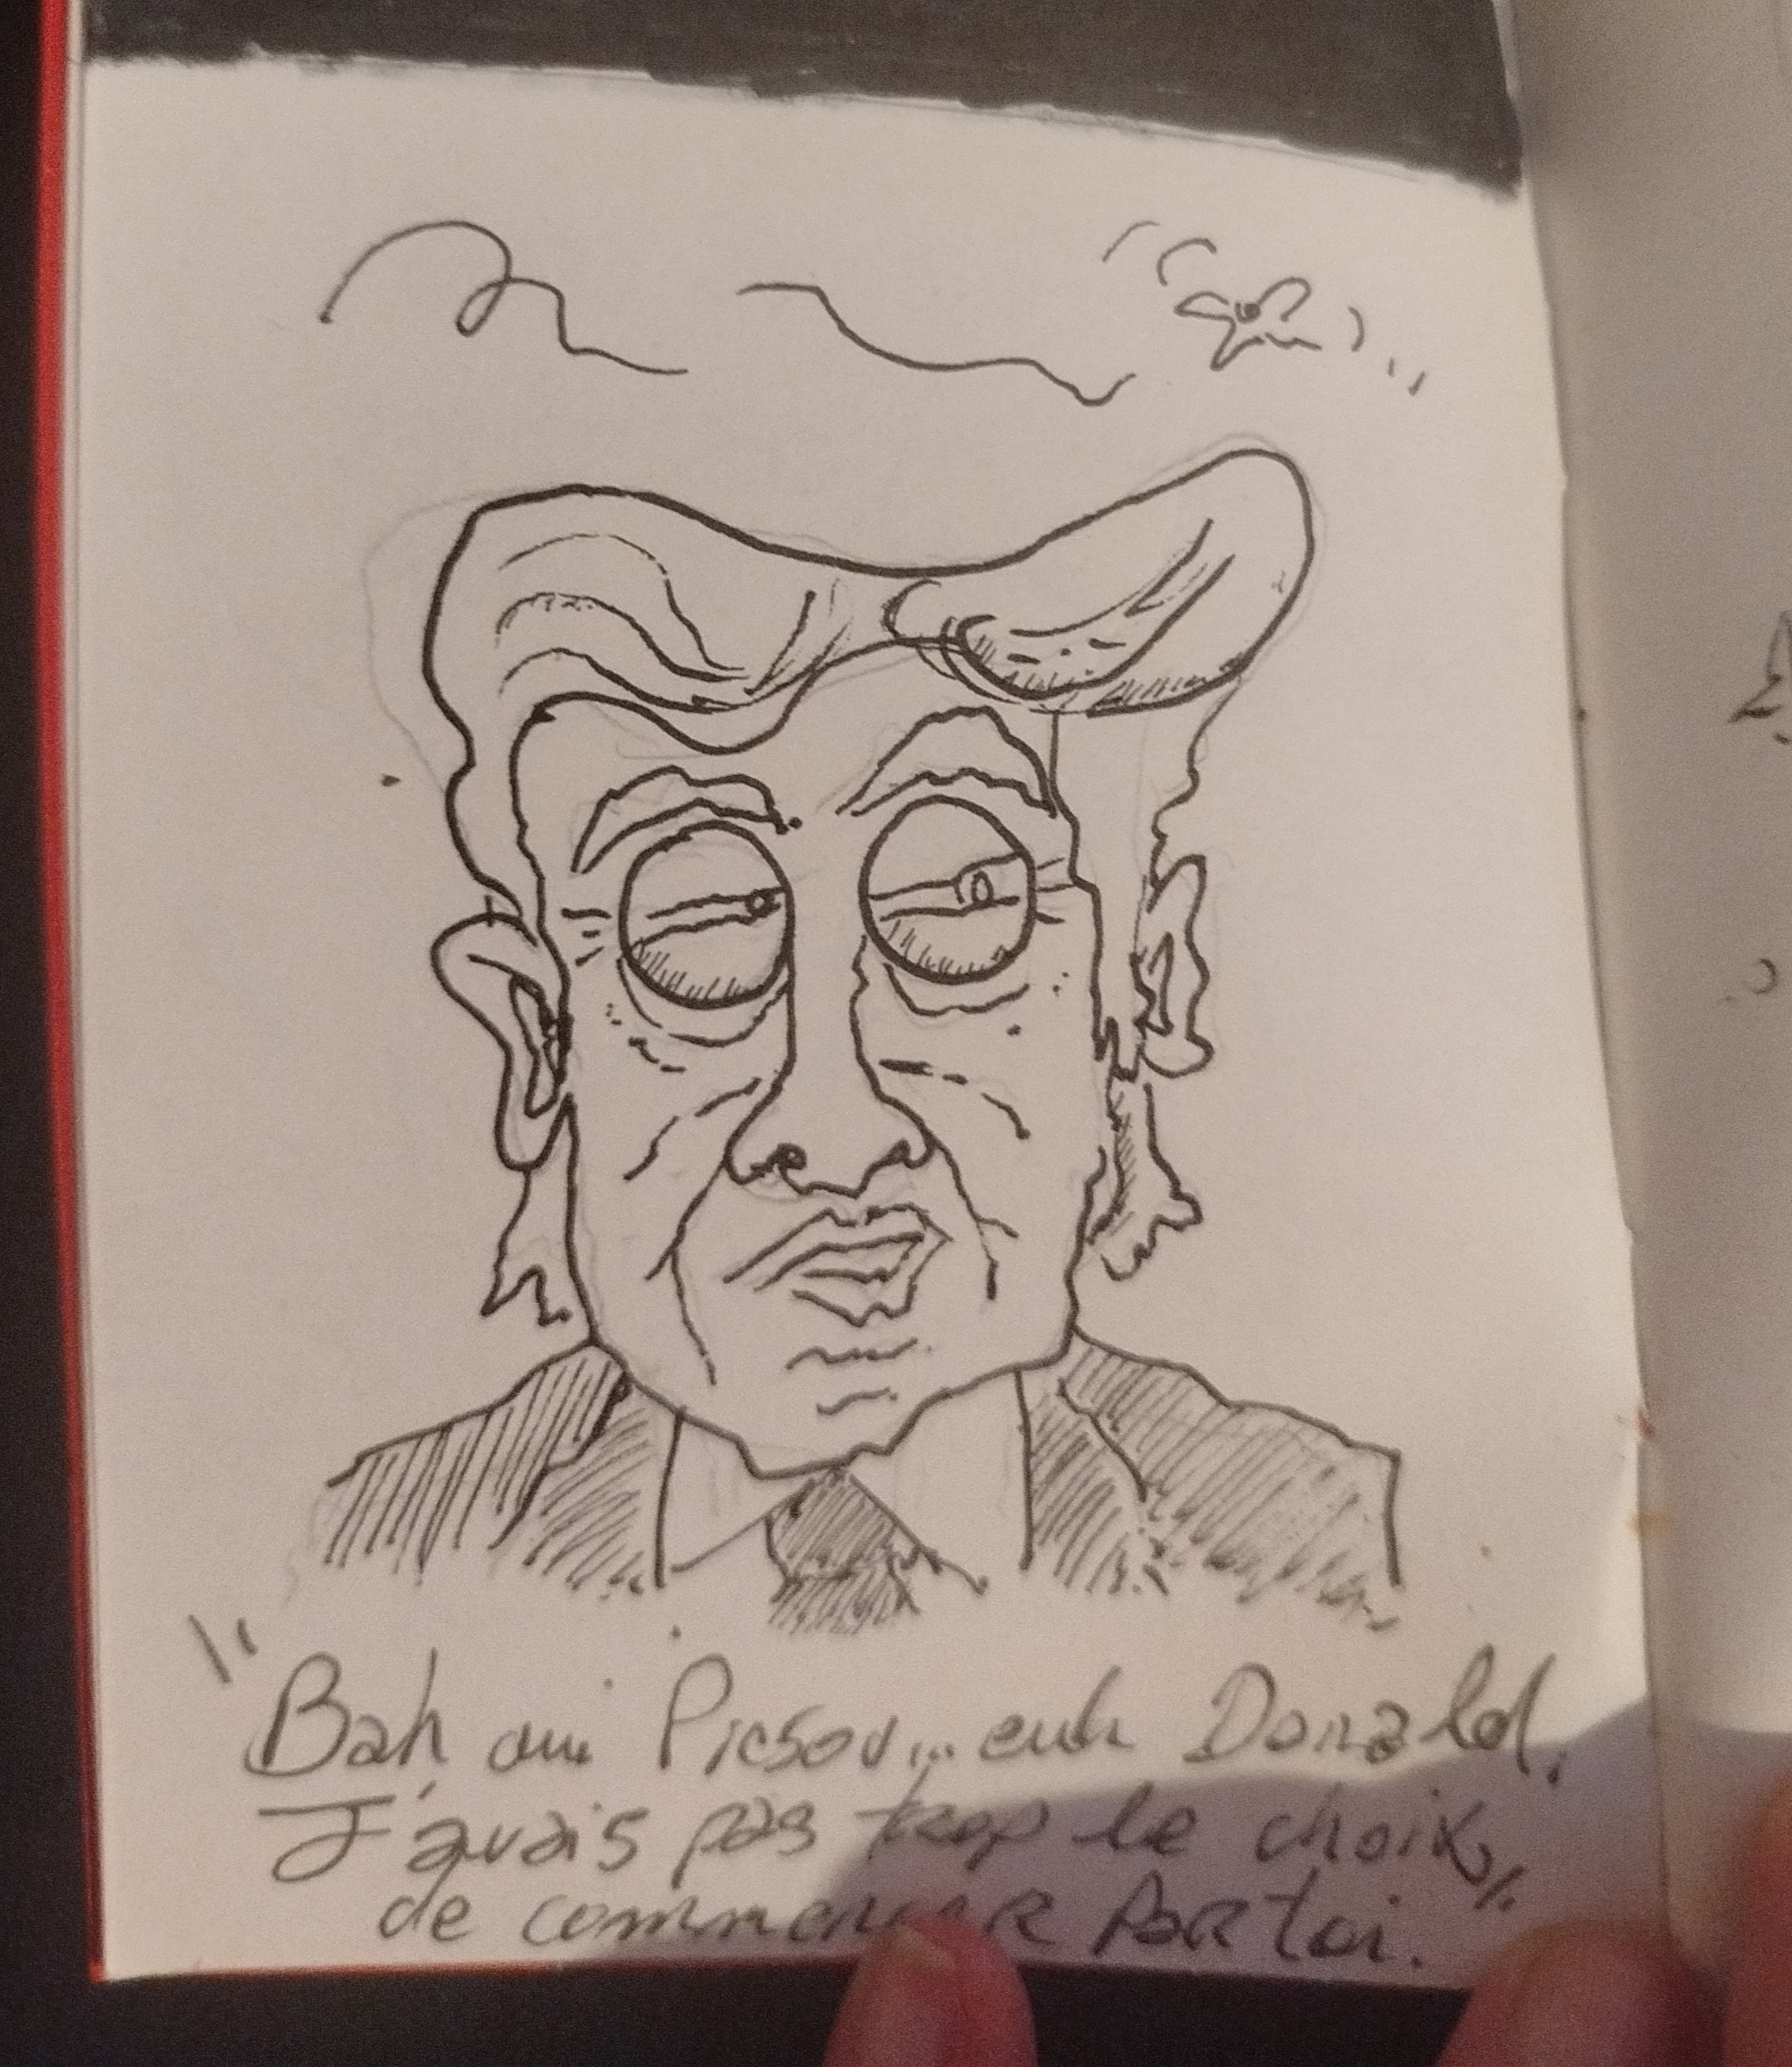 "Bah oui Picsou... euh Donald.
J'avais pas trop le choix,
de commencer par toi."